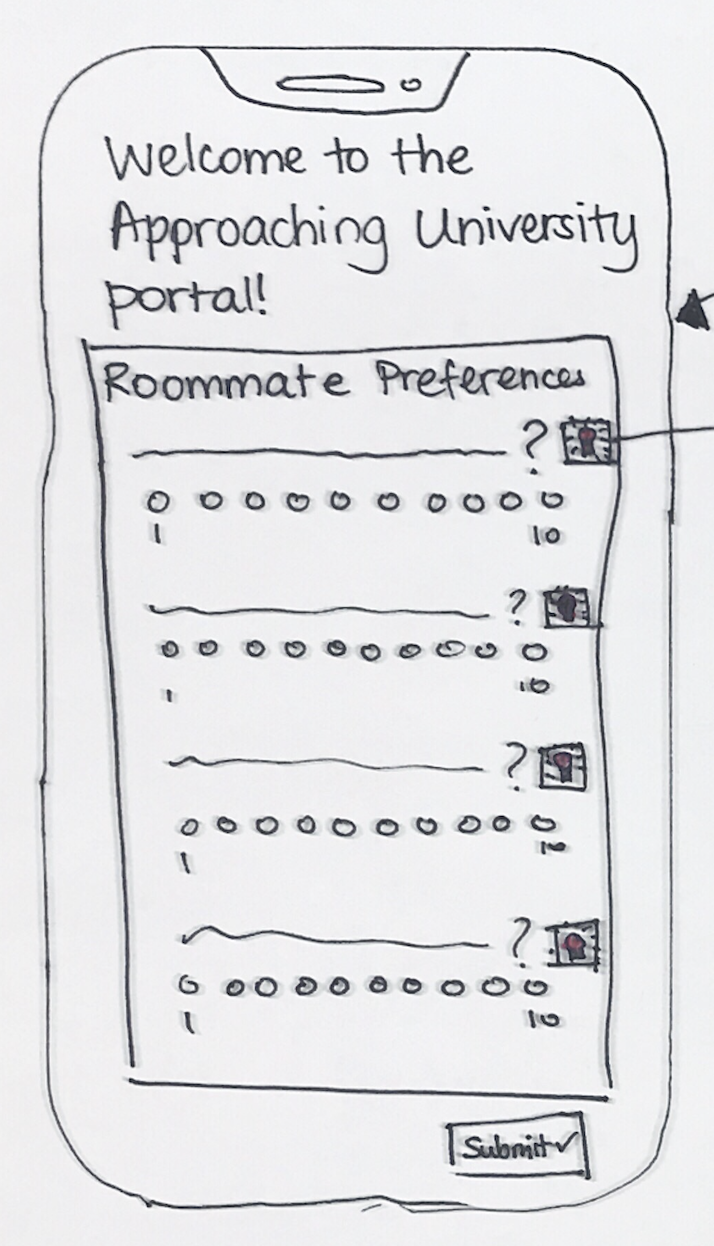 Welcome to the
Approaching University
portal!
Roommate Preferences
?
1 10
?
1 10
?
1 10
?
1 10
Submit✓